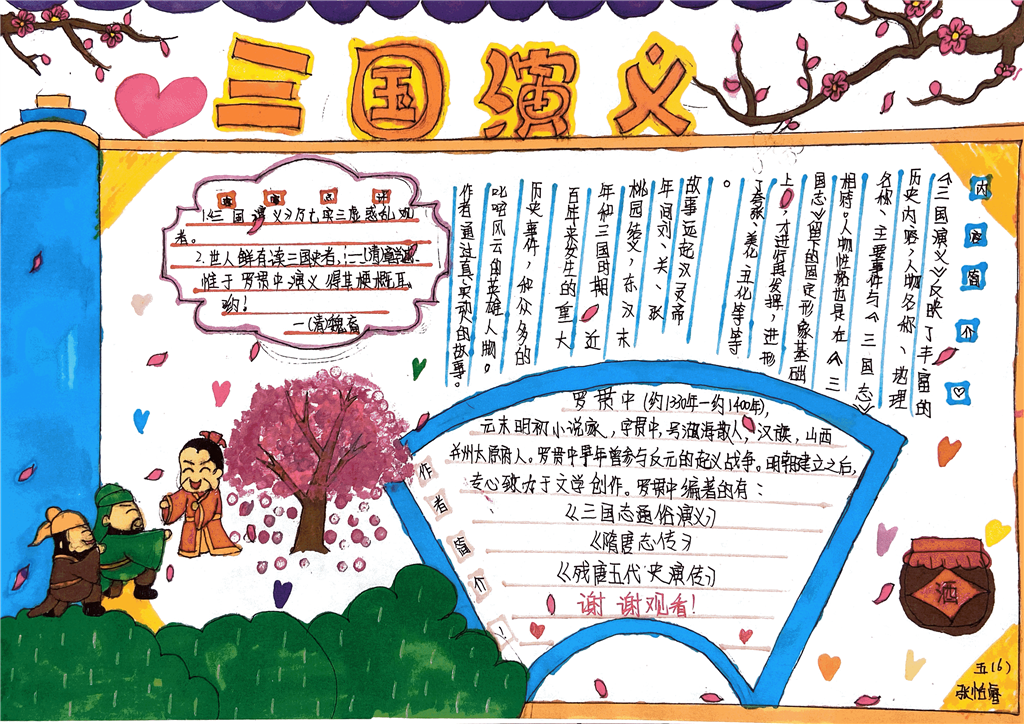 三国演义
内容简介
《三国演义》反映了丰富的
历史内容,人物名称、地理
名称、主要事件与《三国志》
相符。人物性格也是在《三
国志》留下的固定形象基础
上,才进行再发挥,进行
了夸张、美化、丑化等等
。
故事远起汉灵帝
年间刘、关、张
桃园结义,东汉末
年和三国时期,近
百年来发生的重大
历史事件,和众多的
叱咤风云的英雄人物。
作者通过真实动人的故事。
名家点评
1.《三国演义》乃七实三虚惑乱观
者。
——(清)章学诚
2.世人鲜有读三国史者,
惟于罗贯中演义得其梗概耳
哟!
—(清)魏裔
作者简介!
罗贯中(约1330年—约1400年),
元末明初小说家,字贯中,号湖海散人,汉族,山西
并州太原府人。罗贯中早年曾参与反元的起义战争。明朝建立之后,
专心致力于文学创作。罗贯中编著的有:
《三国志通俗演义》
《隋唐志传》
《残唐五代史演传》
谢谢观看!
酒
五(6)
张怡睿